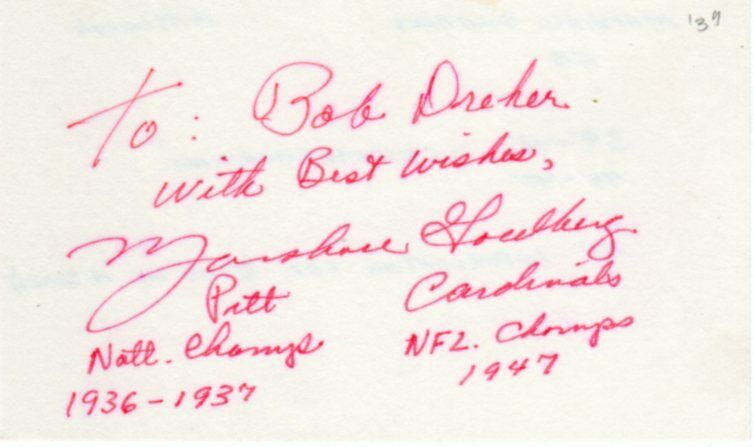 '39
To: Bob Dreher
With Best Wishes,
Marshall Goldberg
Pitt Cardinals
Natl. Champs NFL. Champs
1936-1937 1947